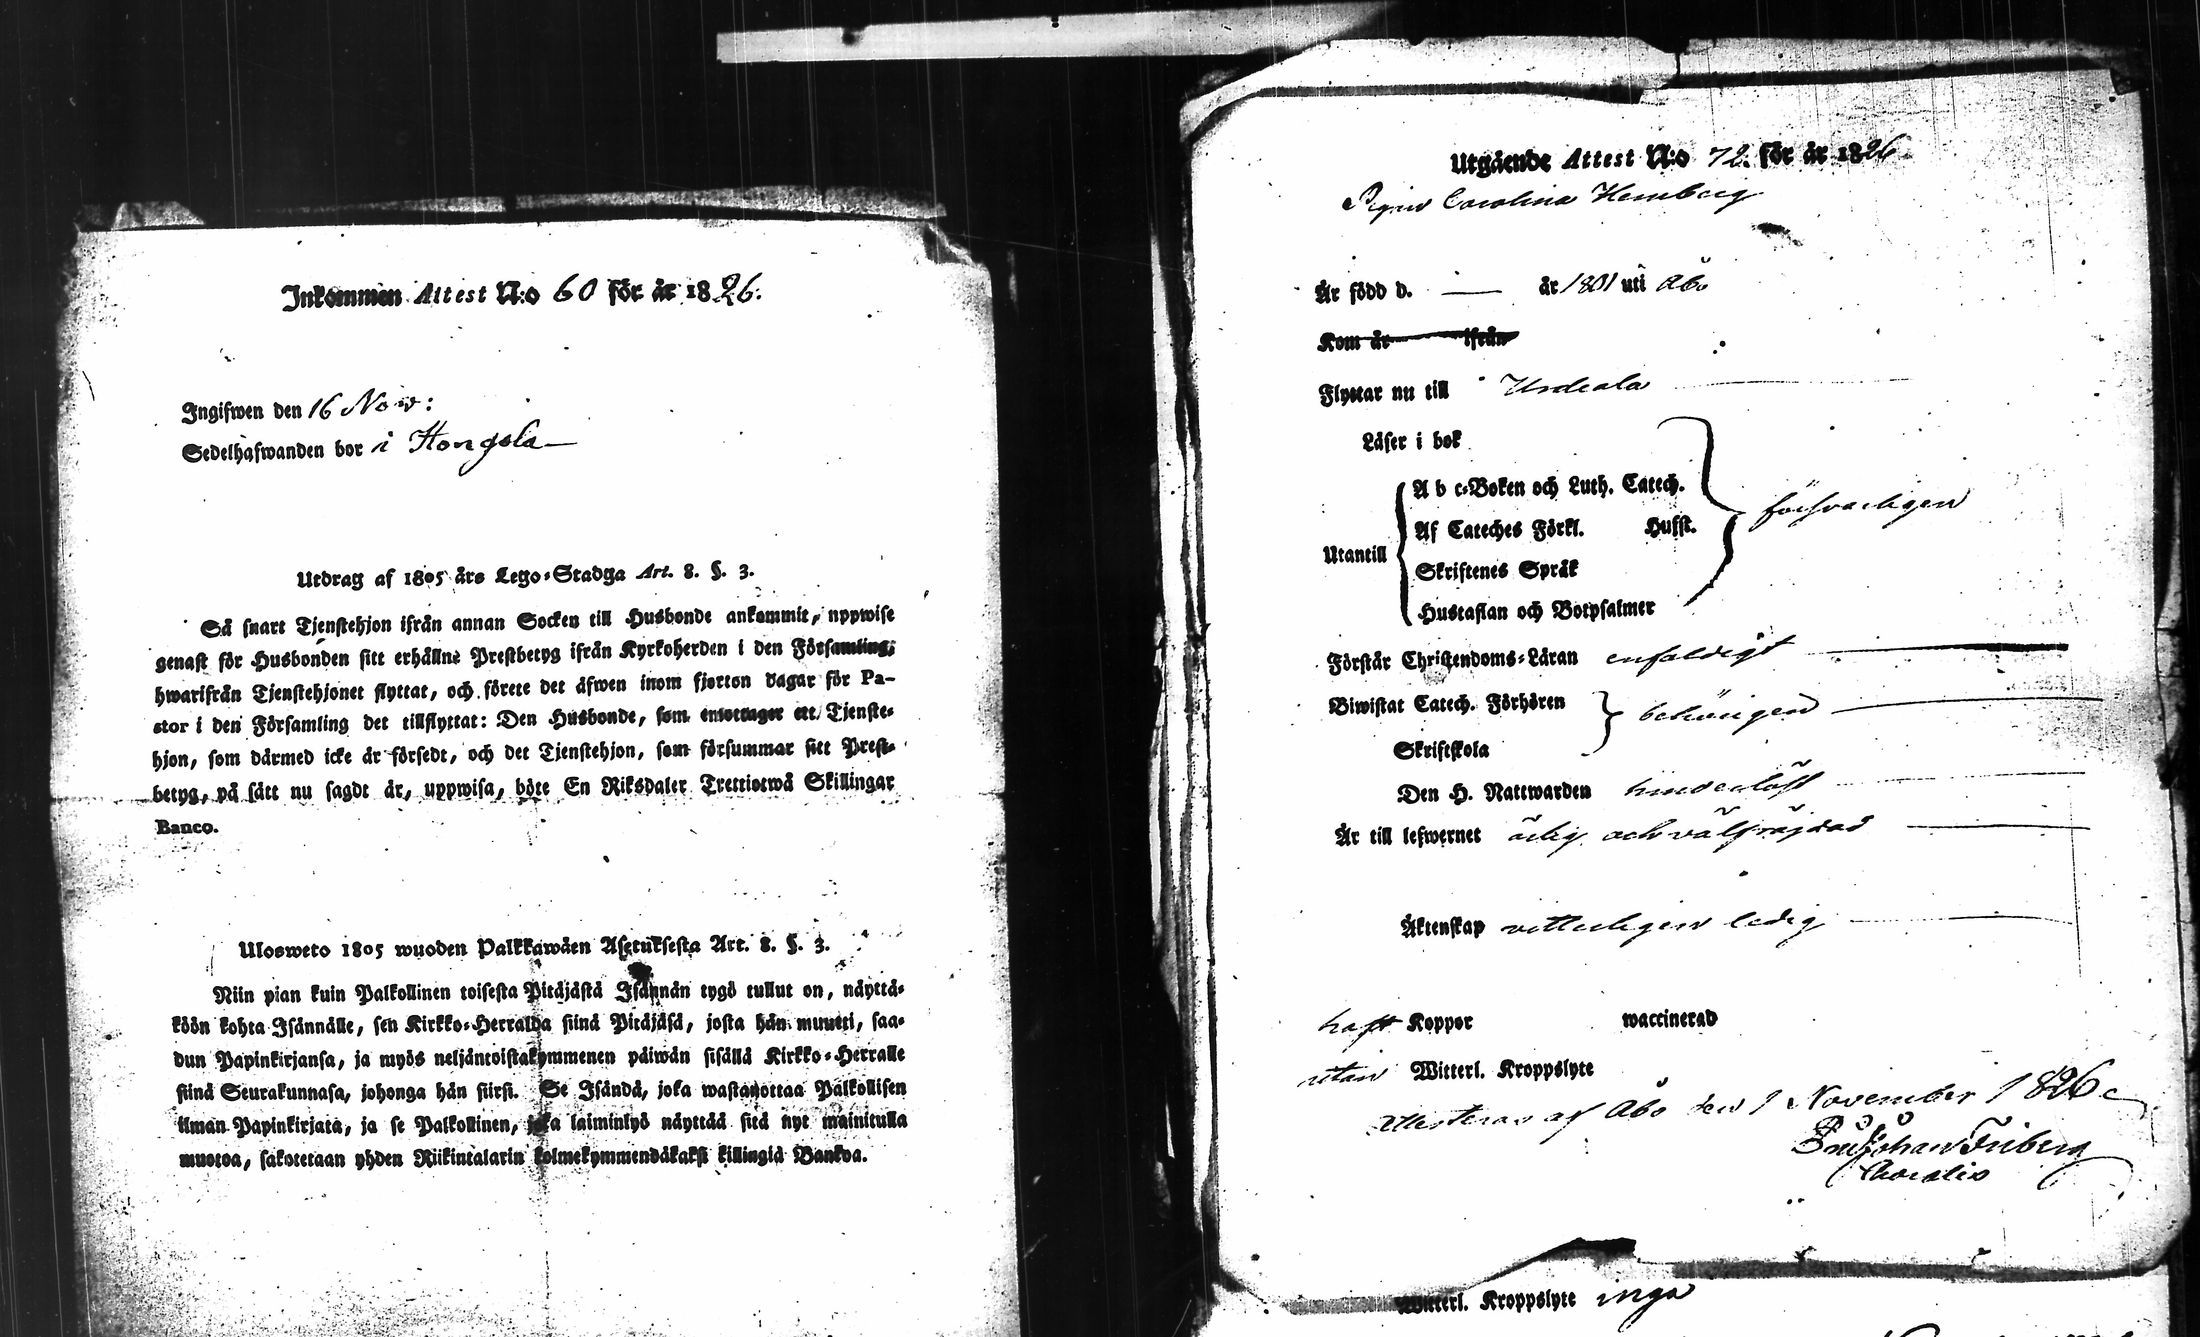 Inkommen Attest N:o 60 för år 1826.
Ingifwen den 16 Nov:
Sedelhafwanden bor i Hongola
Utdrag af 1805 års Lego-Stadga Art. 8. §. 3.
Så snart Tjenstehjon ifrån annan Socken till Husbonde ankommit, uppwise
genast för Husbonden sitt erhållne Prestbetyg ifrån Kyrkoherden i den Församling,
hwarifrån Tjenstehjonet flyttat, och förete det äfwen inom fjorton dagar för Pa-
stor i den Församling det tillflyttat: Den Husbonde, som emottager ett Tjenste-
hjon, som därmed icke är försedt, och det Tjenstehjon, som försummar sitt Prest-
betyg, på sätt nu sagdt är, uppwisa, böte En Riksdaler Trettiotwå Skillingar
Banco.
Ulosweto 1805 wuoden Palkkawäen Asetuksesta Art. 8. §. 3.
Niin pian kuin Palkollinen toisesta Pitäjästä Isännän tygö tullut on, näyttä-
köön kohta Isännälle, sen Kirkko-Herralda siinä Pitäjäsä, josta hän muutti, saa-
dun Papinkirjansa, ja myös neljäntoistakymmenen päiwän sisällä Kirkko-Herralle
siinä Seurakunnasa, johonga hän siirsi. Se Isändä, joka wastanottaa Palkollisen
ilman Papinkirjata, ja se Palkollinen, joka laiminlyö näyttää sitä nyt mainitulla
muotoa, sakotetaan yhden Riikintalarin kolmekymmendäkaksi killingiä Bankoa.
Utgående Attest N:o 72. för år 1826.
Carolina Hemberg
Är född d. — år 1801 uti Åbo
Kom år ifrån
Flyttar nu till Urdiala
Läser i bok
A b c-Boken och Luth. Catech.
Af Cateches Förkl. Husst.
försvarligen
Utantill
Skriftenes Språk
Hustaflan och Botpsalmer
Förstår Christendoms-Läran enfaldigt
Biwistat Catech. Förhören
behörigen
Skriftskola
Den H. Nattwarden hinderlöst
Är till lefwernet ärlig och välfräjdad
Äktenskap vitterligen ledig
haft Koppor waccinerad
utan Witterl. Kroppslyte
Attesteras af Åbo den 1 November 1826
Johan Friberg
Witterl. Kroppslyte inga